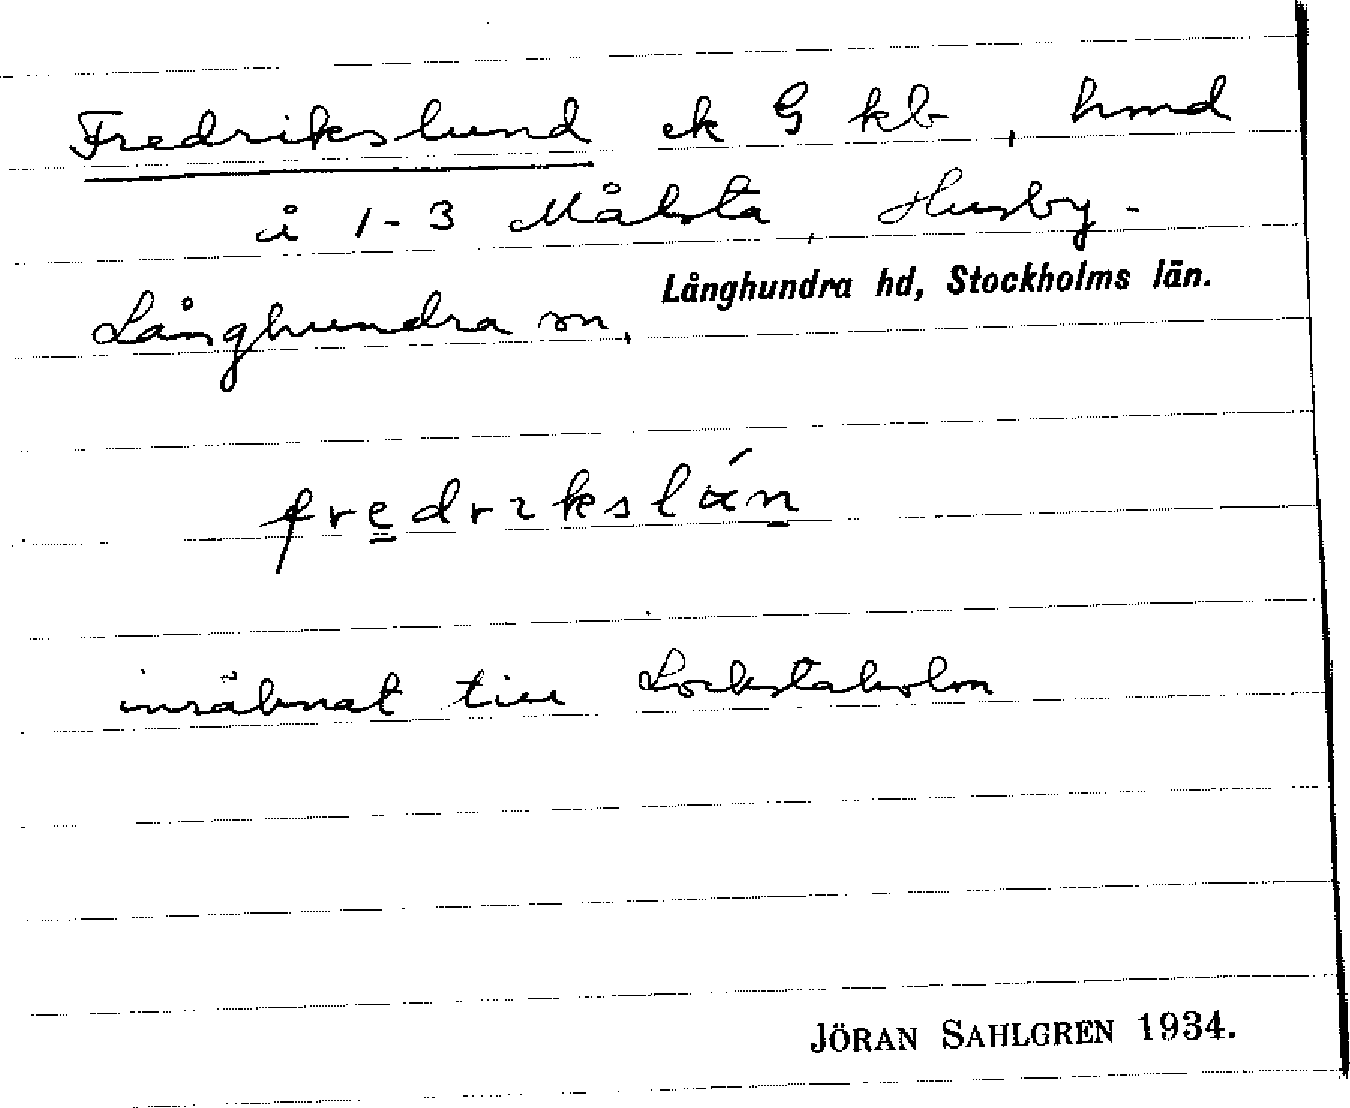 Fredrikslund ek G kb, hmd
i 1-3 Målsta, Husby-
Långhundra sn, Långhundra hd, Stockholms län.
fredrikslán
inräknat till Lockstaholm
JÖRAN SAHLGREN 1934.